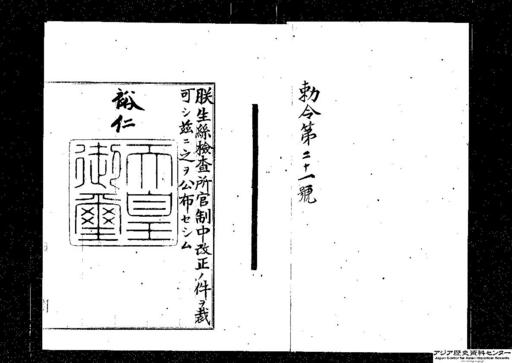 勅令第二十一號
朕生絲檢査所官制中改正ノ件ヲ裁
可シ茲ニ之ヲ公布セシム
裕仁
天皇
御璽
アジア歴史資料センター
Japan Center for Asian Historical Records